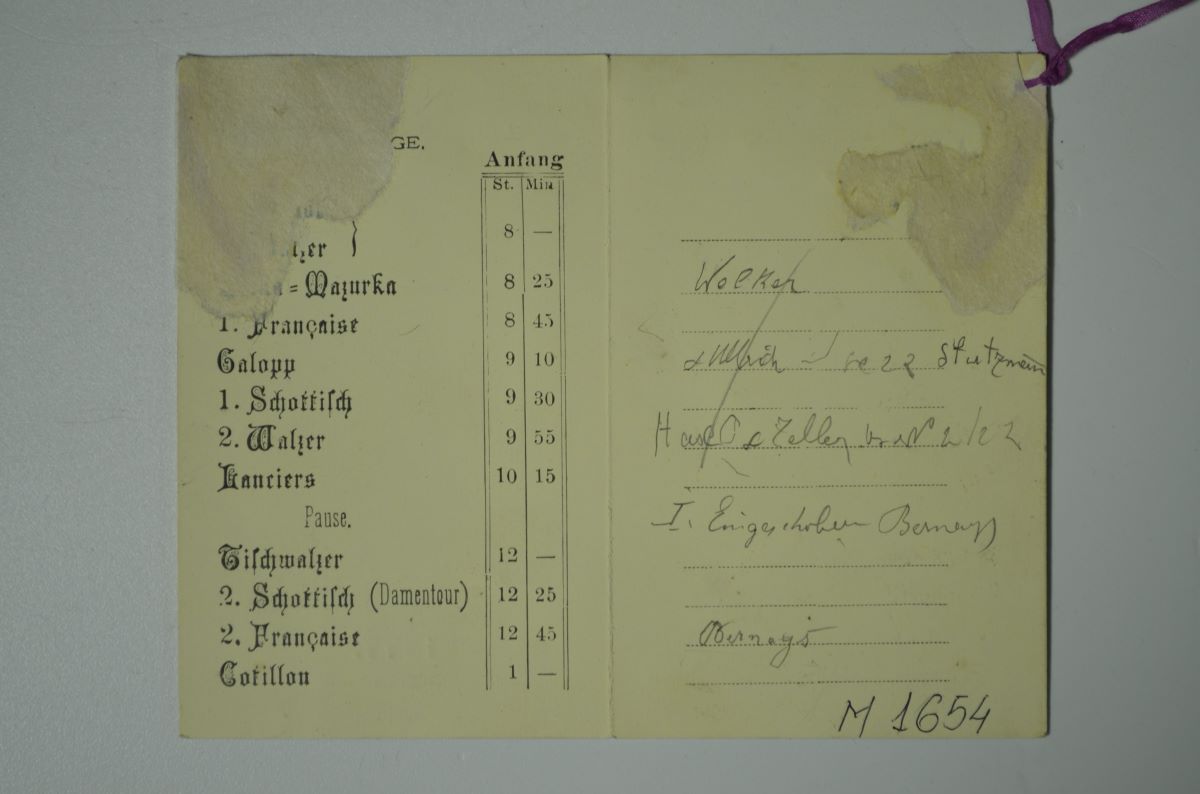 GE.
Anfang
St. Min
lzer } 8 —
= Mazurka 8 25
1. Française 8 45
Galopp 9 10
1. Schottisch 9 30
2. Walzer 9 55
Lanciers 10 15
Pause.
Tischwalzer 12 —
2. Schottisch (Damentour) 12 25
2. Française 12 45
Cotillon 1 —
Welker
Stutzmann
Zeller
I. Eingeschoben Bernays
Bernays
M 1654